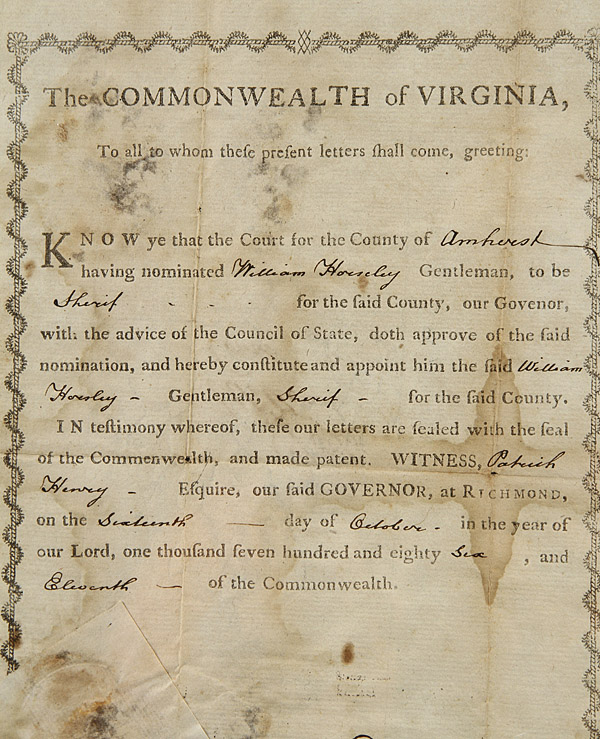 The COMMONWEALTH of VIRGINIA,
To all to whom theſe preſent letters ſhall come, greeting:
KNOW ye that the Court for the County of Amherst
having nominated William Horsley Gentleman, to be
Sherif - - - for the ſaid County, our Govenor,
with the advice of the Council of State, doth approve of the ſaid
nomination, and hereby conſtitute and appoint him the ſaid William
Horsley - Gentleman, Sherif - for the ſaid County.
IN teſtimony whereof, theſe our letters are ſealed with the ſeal
of the Commenwealth, and made patent. WITNESS, Patrick
Henry - Eſquire, our ſaid GOVERNOR, at RICHMOND,
on the Sixteenth — day of October - in the year of
our Lord, one thouſand ſeven hundred and eighty Six , and
Eleventh — of the Commonwealth.